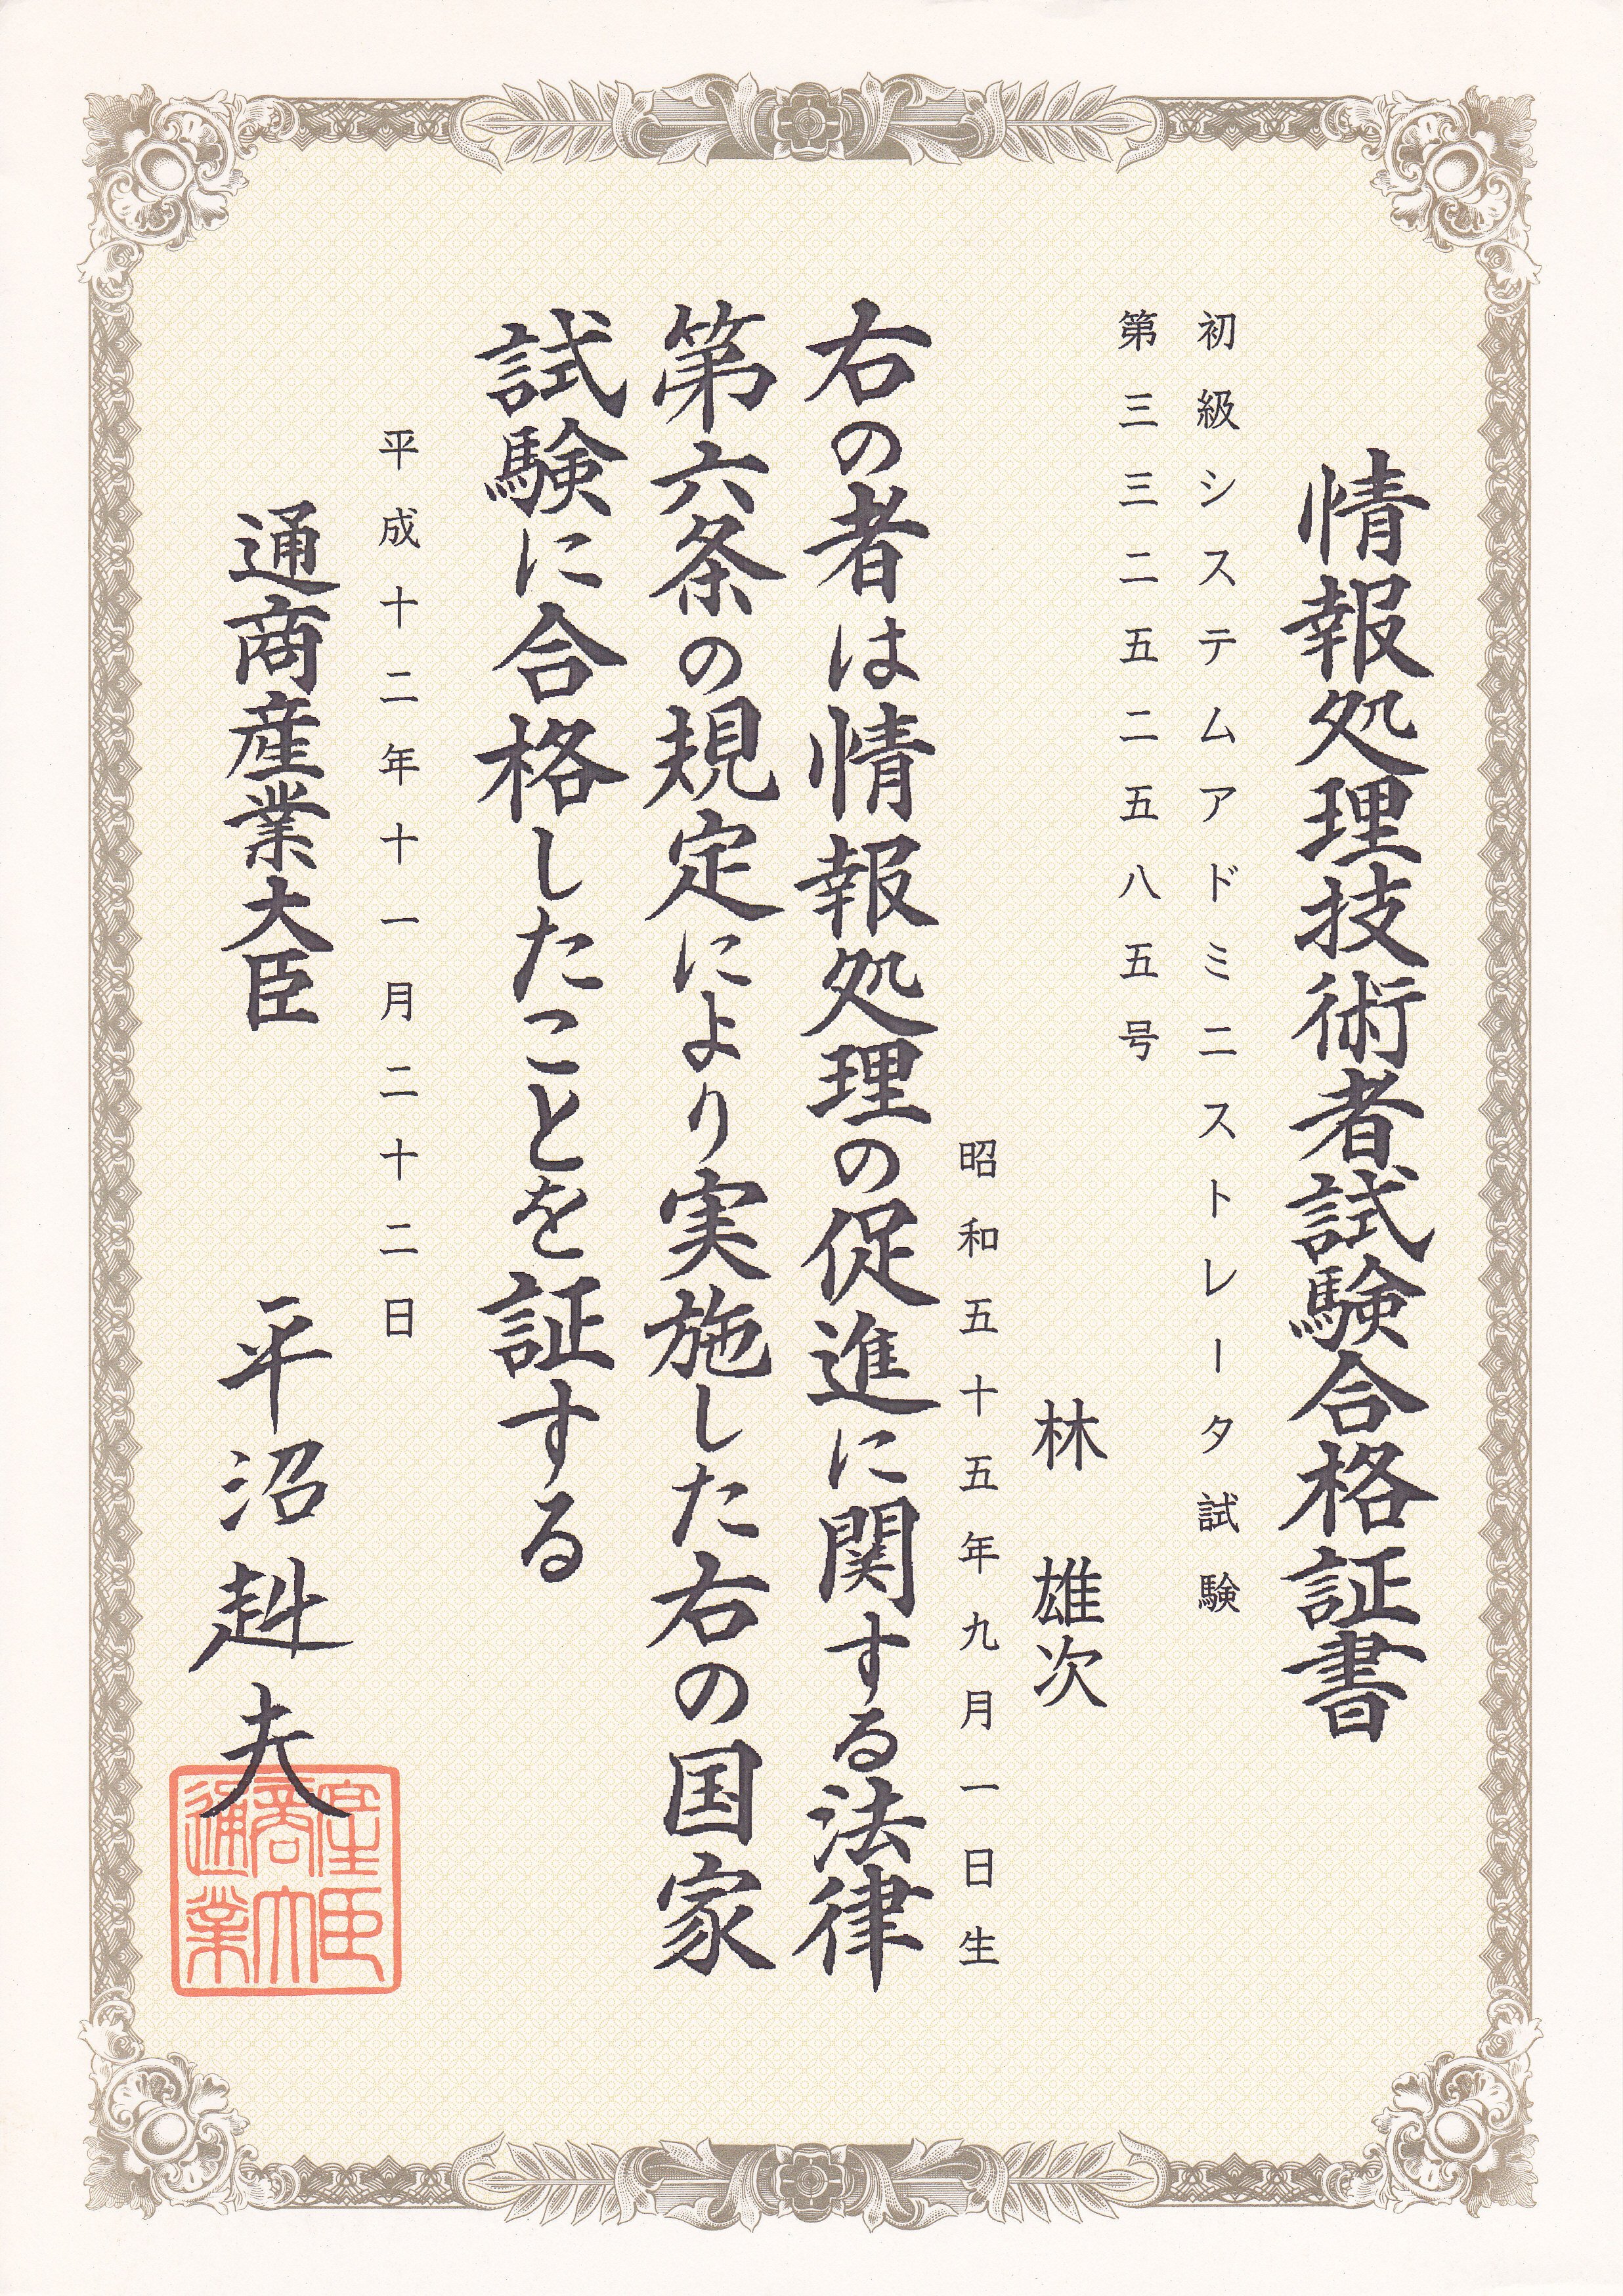 情報処理技術者試験合格証書
初級システムアドミニストレータ試験
第三三二五二五八五号
林 雄次
昭和五十五年九月一日生
右の者は情報処理の促進に関する法律
第六条の規定により実施した右の国家
試験に合格したことを証する
平成十二年十一月二十二日
通商産業大臣 平沼赳夫
通商産業大臣